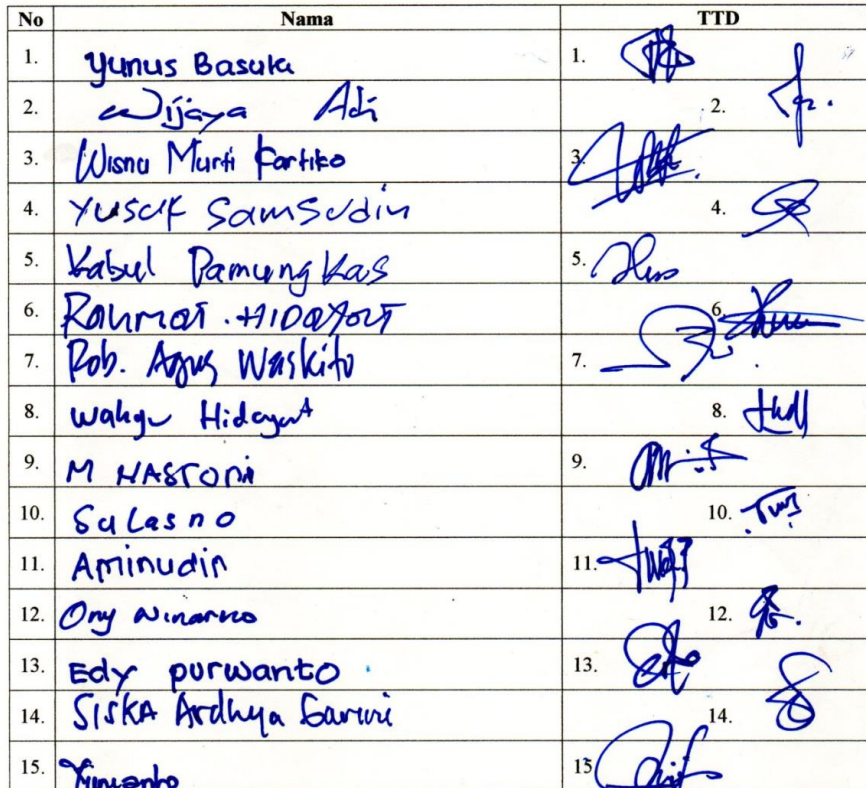 No Nama TTD
1. Yunus Basuki 1.
2. Wijaya Adi 2.
3. Wisnu Murti Kartiko 3.
4. Yusuf Samsudin 4.
5. Kabul Pamungkas 5.
6. Rahmat Hidayat 6.
7. Rob. Agus Waskito 7.
8. Wahyu Hidayat 8.
9. M HASTONI 9.
10. Sulasno 10.
11. Aminudin 11.
12. Ony Winarno 12.
13. Edy purwanto 13.
14. SISKA Ardhya 14.
15. 15